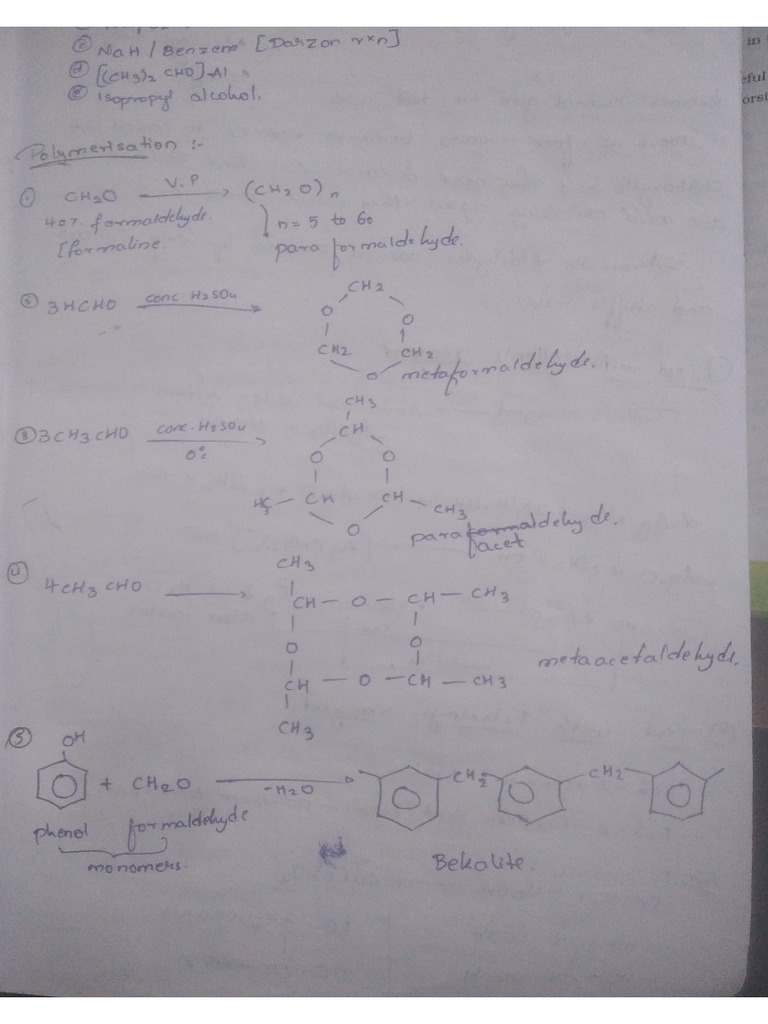 ⓒ NaH / Benzene [Darzon rxn]
ⓓ [(CH3)2 CHO]-Al
ⓔ Isopropyl alcohol.
Polymerisation :-
① CH2O V.P → (CH2O)n
40%. formaldehyde. n = 5 to 60
[formaline. para formaldehyde.
② 3HCHO conc H2SO4 → CH2
O O
CH2 CH2
O metaformaldehyde.
CH3
③ 3CH3CHO conc. H2SO4 → CH
0°c O O
H3C - CH CH - CH3
O paraformaldehyde.
acet
CH3
④ 4CH3CHO → CH - O - CH - CH3
O O
metaacetaldehyde.
CH - O - CH - CH3
CH3
⑤ OH
+ CH2O -H2O → CH2 CH2
phenol formaldehyde
monomers. Bekalite.
in
eful
orst